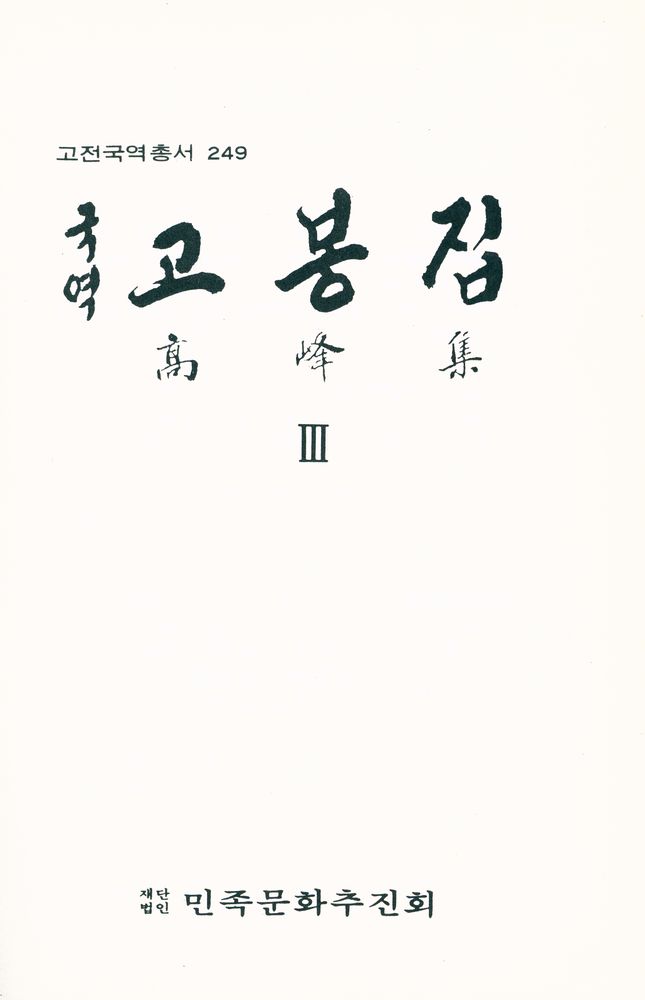 고전국역총서 249
국역 고봉집
高峰集
Ⅲ
재단법인 민족문화추진회